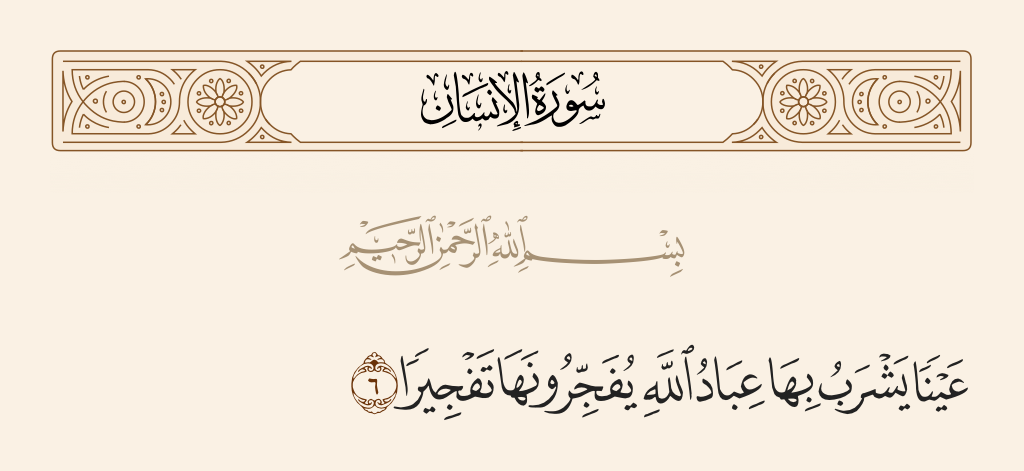 سُورَةُ الإِنسَانِ
بِسْمِ ٱللَّهِ ٱلرَّحْمَٰنِ ٱلرَّحِيمِ
عَيْنًا يَشْرَبُ بِهَا عِبَادُ ٱللَّهِ يُفَجِّرُونَهَا تَفْجِيرًا ٦